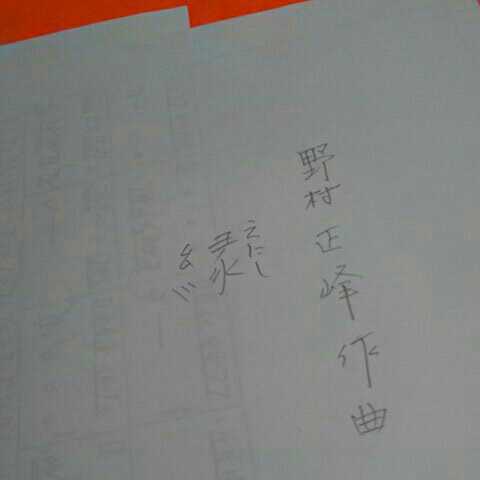 野村正峰作曲
えにし
縁